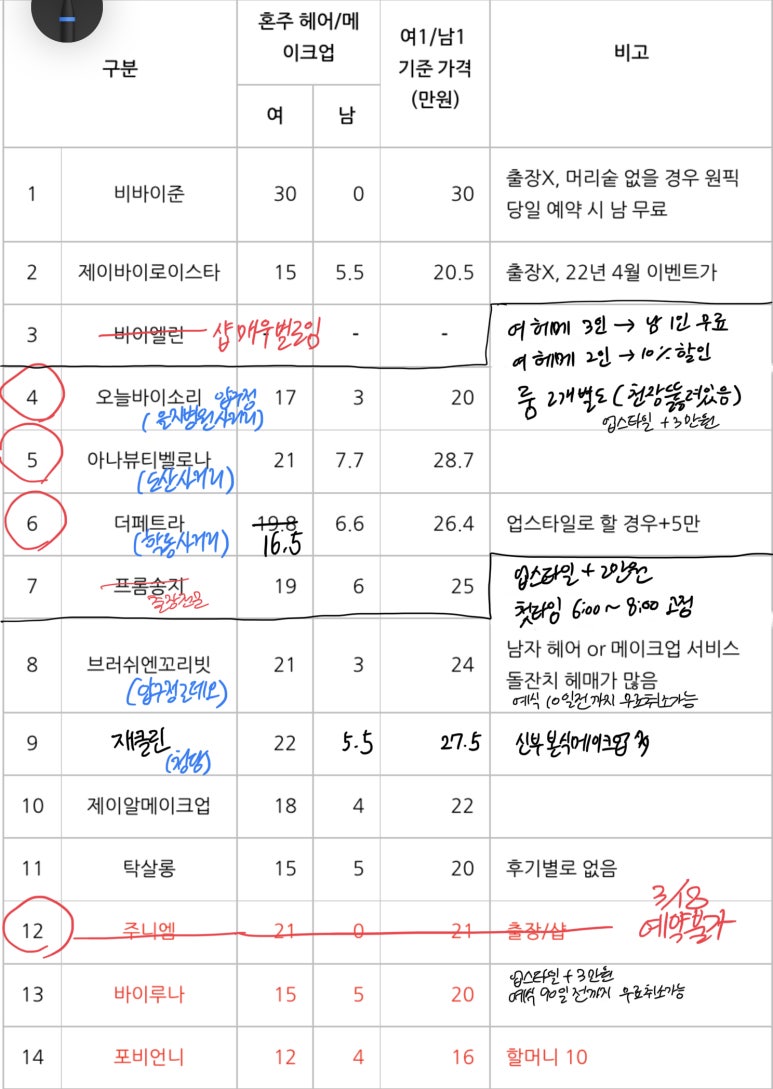 구분
혼주 헤어/메
이크업
여
남
여1/남1
기준 가격
(만원)
비고
1 비바이준 30 0 30 출장X, 머리숱 없을 경우 원픽
당일 예약 시 남 무료
2 제이바이로이스타 15 5.5 20.5 출장X, 22년 4월 이벤트가
3 비아엘린 샵 매우별로임 - -
여 헤메 3인 → 남 1인 무료
여 헤메 2인 → 10% 할인
4 오늘바이소리 압구정 17 3 20 룸 2개 별도 (천장뚫려있음)
(을지병원사거리) 업스타일 +3만원
5 아나뷰티벨로나 21 7.7 28.7
(도산사거리)
6 더페트라 19.8 6.6 26.4 업스타일로 할 경우+5만
(학동사거리) 16.5
7 프롬송지 19 6 25 업스타일 + 2만원
출장전문 첫타임 6:00 ~ 8:00 고정
8 브러쉬엔꼬리빗 21 3 24 남자 헤어 or 메이크업 서비스
돌잔치 헤매가 많음
(압구정로데오) 예식 10일전까지 무료취소가능
9 재클린 22 5.5 27.5 신부 본식메이크업
(청담)
10 제이알메이크업 18 4 22
11 탁살롱 15 5 20 후기별로 없음
12 주니엠 21 0 21 출장/샵 3/18
예약불가
13 바이루나 15 5 20 업스타일 + 3만원
예식 90일 전까지 무료취소가능
14 포비언니 12 4 16 할머니 10